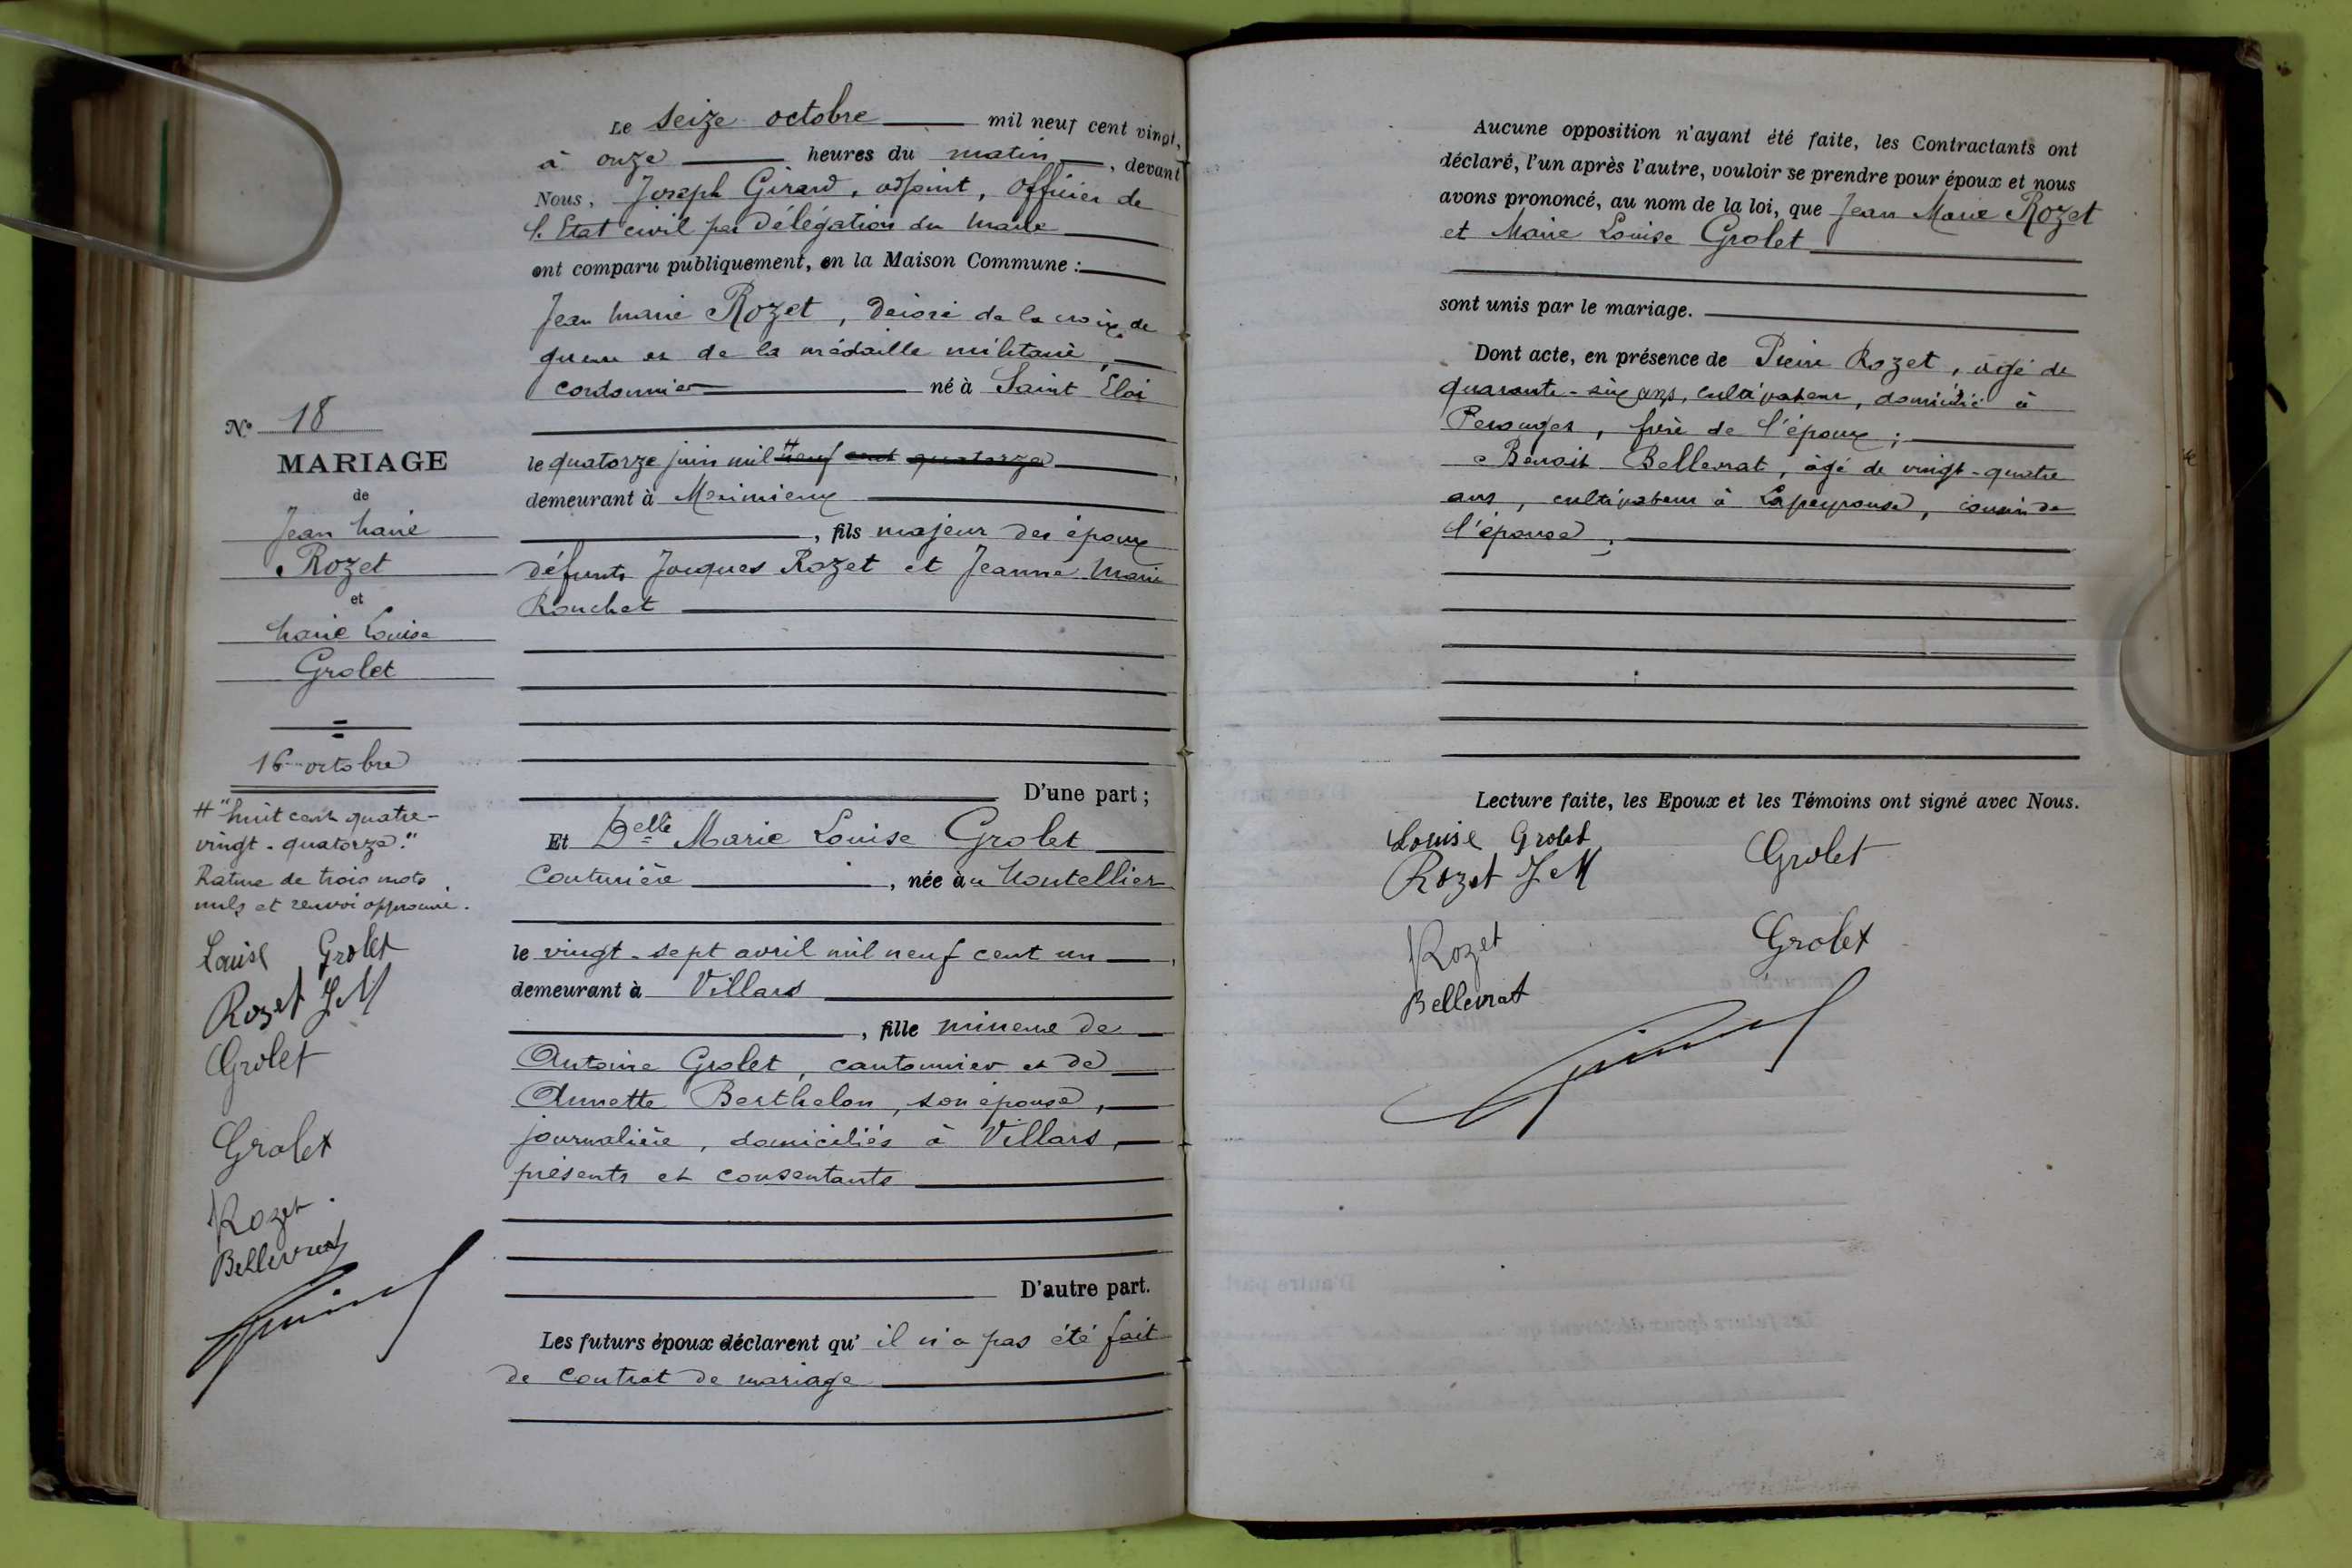 Le seize octobre mil neuf cent vingt,
à onze heures du matin, devant
Nous, Joseph Girard, adjoint, Officier de
l'Etat civil par délégation du Maire
ont comparu publiquement, en la Maison Commune :
Jean Marie Rozet, décoré de la croix de
guerre et de la médaille militaire,
cordonnier né à Saint Eloi
le quatorze juin mil # neuf cent quatorze,
demeurant à Meximieux
, fils majeur des époux
défunts Jacques Rozet et Jeanne Marie
Rouchet
D'une part ;
Et Delle Marie Louise Grolet
Couturière, née àu Montellier
le vingt-sept avril mil neuf cent un,
demeurant à Villars
, fille mineure de
Antoine Grolet, cantonnier et de
Annette Berthelon, son épouse,
journalière, domiciliés à Villars,
présents et consentants
D'autre part.
Les futurs époux déclarent qu'il n'a pas été fait
de contrat de mariage
N° 18
MARIAGE
de
Jean Marie
Rozet
et
Marie Louise
Grolet
16 octobre
# "huit cent quatre-
vingt-quatorze."
Rature de trois mots
nuls et renvoi approuvé.
Louise Grolet
Rozet J M
Grolet
Grolet
Rozet
Bellevrat
Aucune opposition n'ayant été faite, les Contractants ont
déclaré, l'un après l'autre, vouloir se prendre pour époux et nous
avons prononcé, au nom de la loi, que Jean Marie Rozet
et Marie Louise Grolet
sont unis par le mariage.
Dont acte, en présence de Pierre Rozet, âgé de
quarante-six ans, cultivateur, domicilié à
Perouges, frère de l'époux ;
Benoit Bellevrat, âgé de vingt-quatre
ans, cultivateur à Lapeyrouse, cousin de
l'épouse ;
Lecture faite, les Epoux et les Témoins ont signé avec Nous.
Louise Grolet Grolet
Rozet J M
Rozet Grolet
Bellevrat